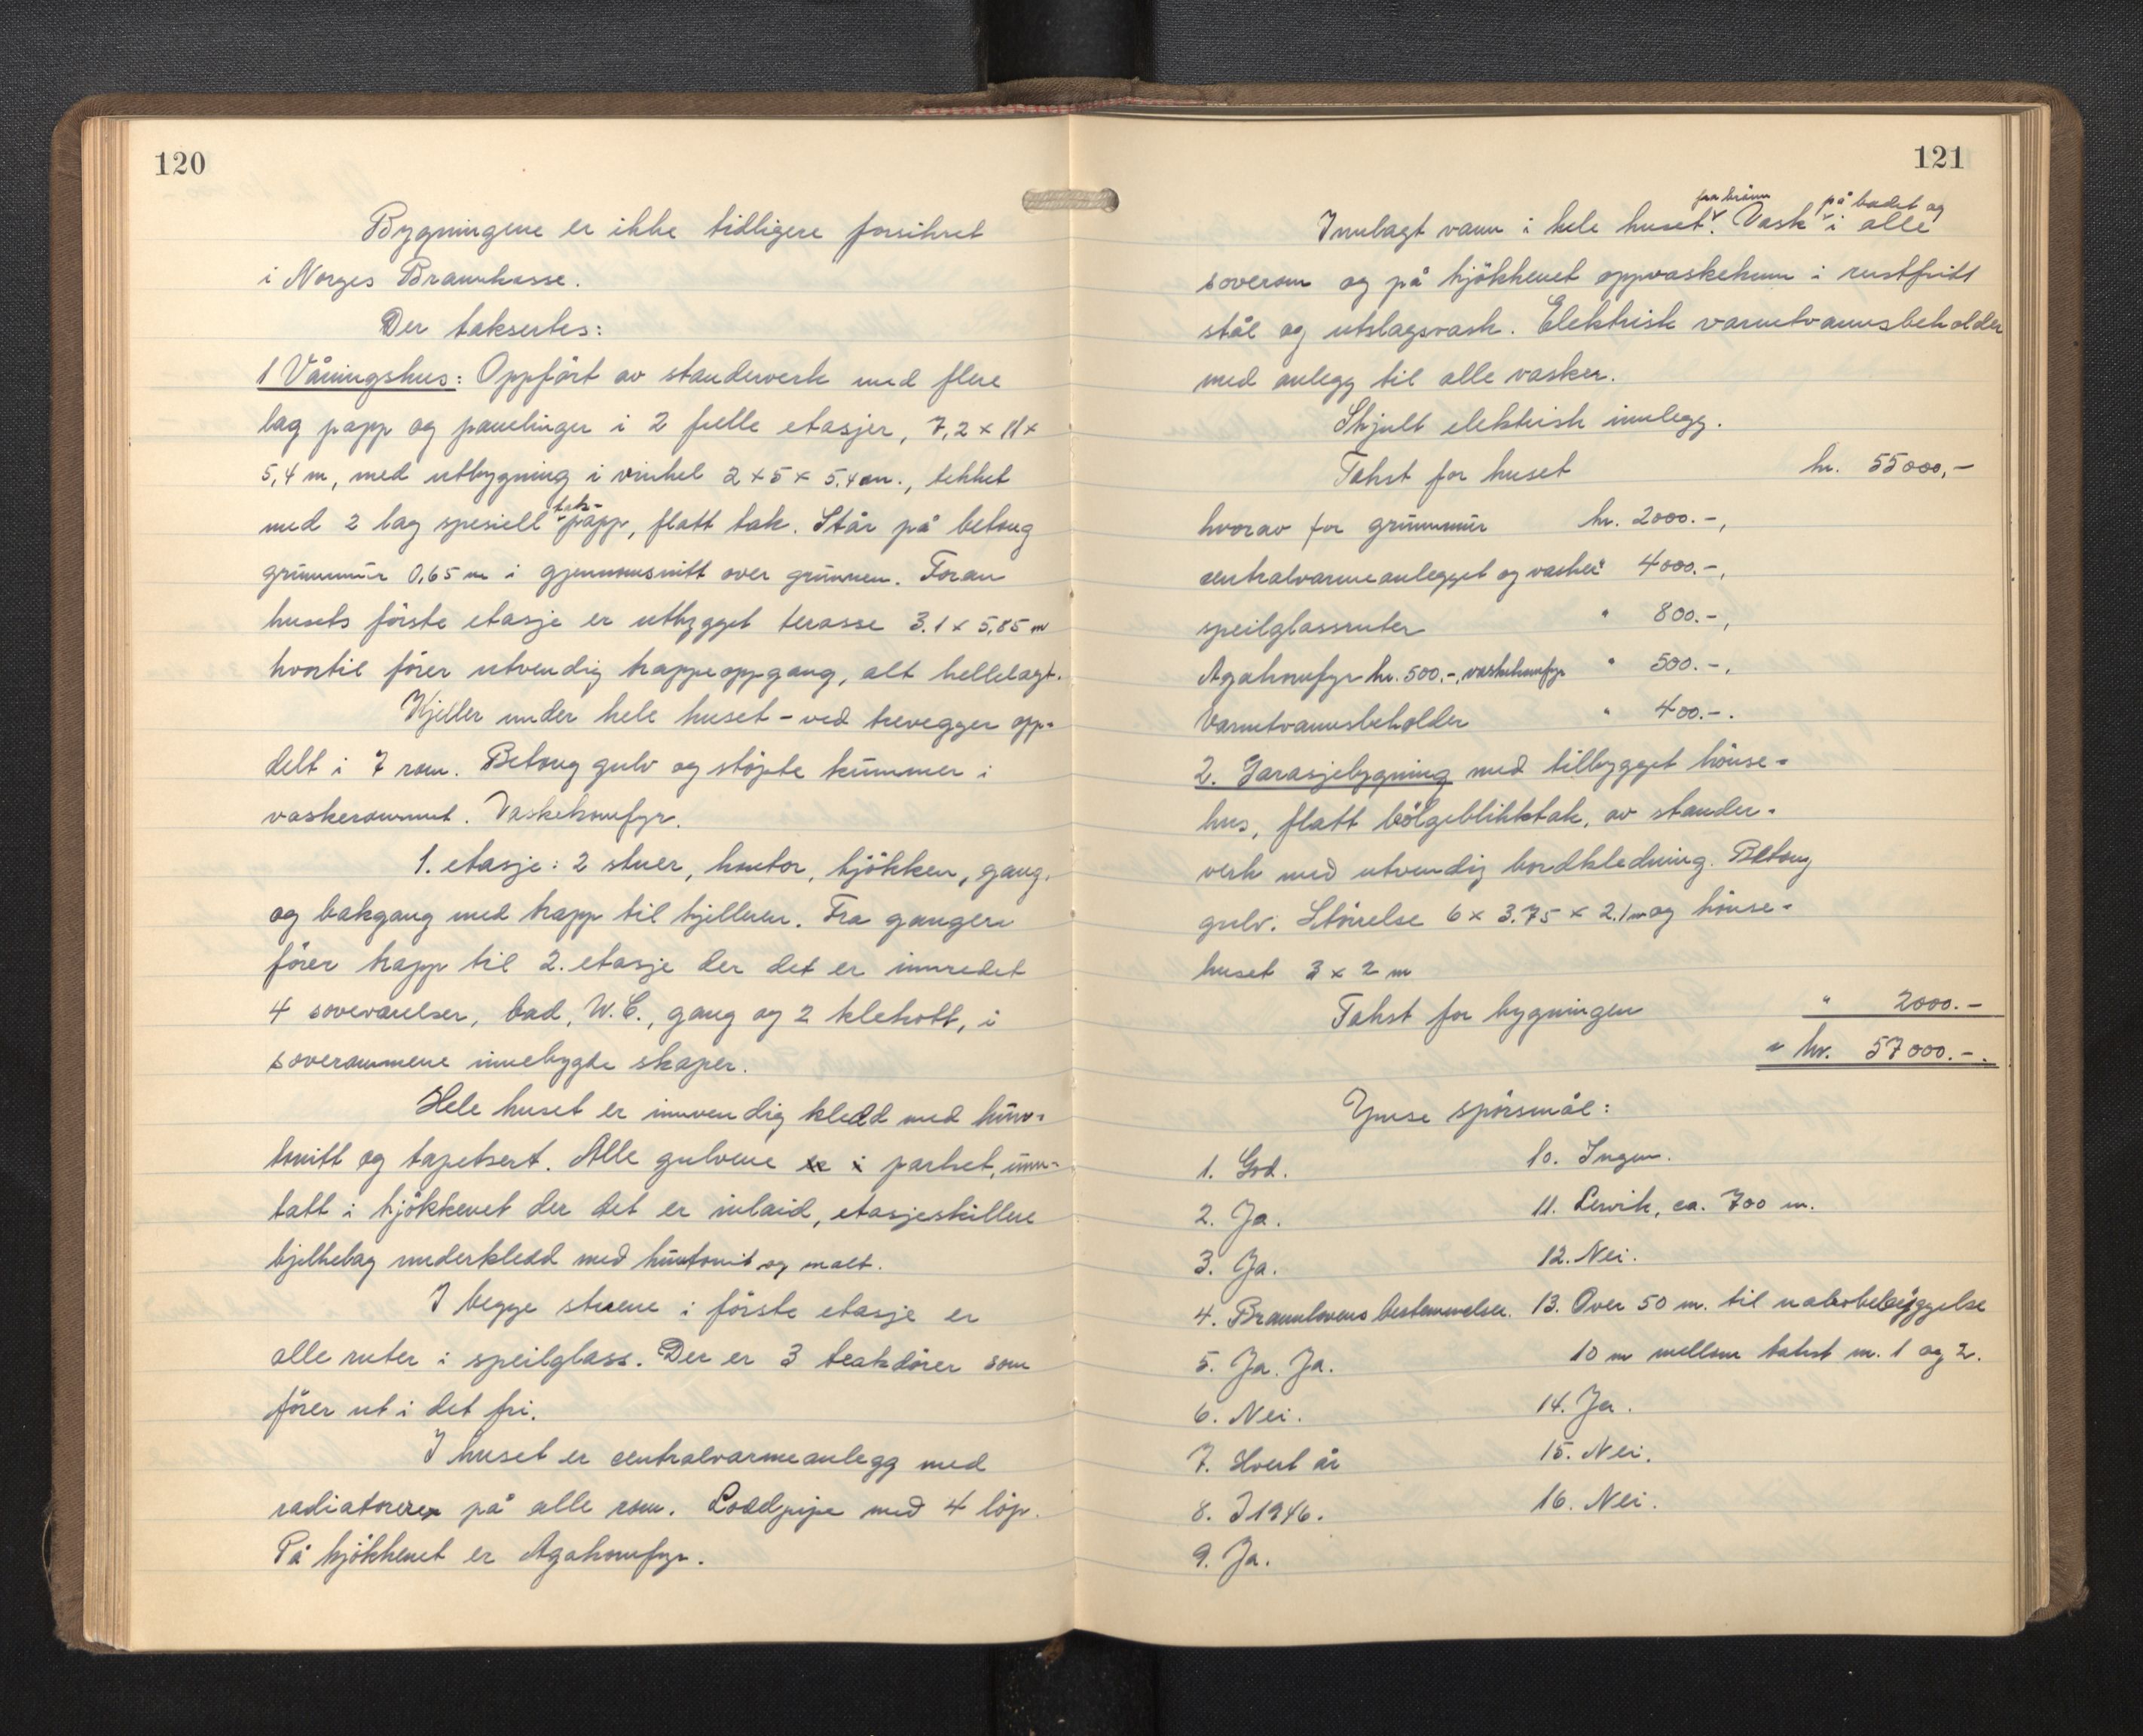 120
Bygningene er ikke tidligere forsikret
i Norges Brannkasse.
Der taksertes:
1 Våningshus: Oppført av standerverk med flere
lag papp og panelinger i 2 fulle etasjer, 7,2 x 11 x
5,4 m, med utbygning i vinkel 2 x 5 x 5,4 m., tekket
med 2 lag spesiell tak-papp, flatt tak. Står på betong
grunnmur 0,65 m i gjennomsnitt over grunnen. Foran
husets første etasje er utbygget terasse 3.1 x 5,85 m
hvortil fører utvendig trappeoppgang, alt hellelagt.
Kjeller under hele huset - ved trevegger opp-
delt i 7 rom. Betong gulv og støpte kummer i
vaskerommet. Vaskekomfyr.
1. etasje: 2 stuer, kontor, kjøkken, gang,
og bakgang med trapp til kjelleren. Fra gangen
fører trapp til 2. etasje der det er innredet
4 soveværelser, bad, W.C., gang og 2 klekott, i
soverommene innebygde skaper.
Hele huset er innvendig kledd med hun-
tonitt og tapetsert. Alle gulvene er i parket, unn-
tatt i kjøkkenet der det er inlaid, etasjeskillere
bjelkelag underkledd med huntonit og malt.
I begge stuene i første etasje er
alle ruter i speilglass. Der er 3 teakdører som
fører ut i det fri.
I huset er centralvarmeanlegg med
radiatorer på alle rom. Loddpipe med 4 løp.
På kjøkkenet er Agakomfyr.
121
fra brønn på badet og
Innlagt vann i hele huset. Vask i alle
soverom og på kjøkkenet oppvaskekum i rustfritt
stål og utslagsvask. Elektrisk varmtvannsbeholder
med anlegg til alle vasker.
Skjult elektrisk innlegg.
Takst for huset kr. 55000,-
hvorav for grunnmur kr. 2000.-,
centralvarmeanlegget og vasker " 4000.-,
speilglassruter " 800.-,
Agakomfyr kr. 500.-, vaskekomfyr " 500.-,
Varmtvannsbeholder " 400.-.
2. Garasjebygning med tilbygget hønse-
hus, flatt bølgeblikktak, av stander-
verk med utvendig bordkledning. Betong
gulv. Størrelse 6 x 3.75 x 2.1 m og hønse-
huset 3 x 2 m
Takst for bygningen " 2000.-
" kr. 57000.-.
Ymse spørsmål:
1. God.
2. Ja.
3. Ja.
4. Brannlovens bestemmelser.
5. Ja. Ja.
6. Nei.
7. Hvert år
8. I 1946.
9. Ja.
10. Ingen.
11. Lervik, ca. 700 m.
12. Nei.
13. Over 50 m. til nabobebyggelse
10 m mellom takst nr. 1 og 2.
14. Ja.
15. Nei.
16. Nei.